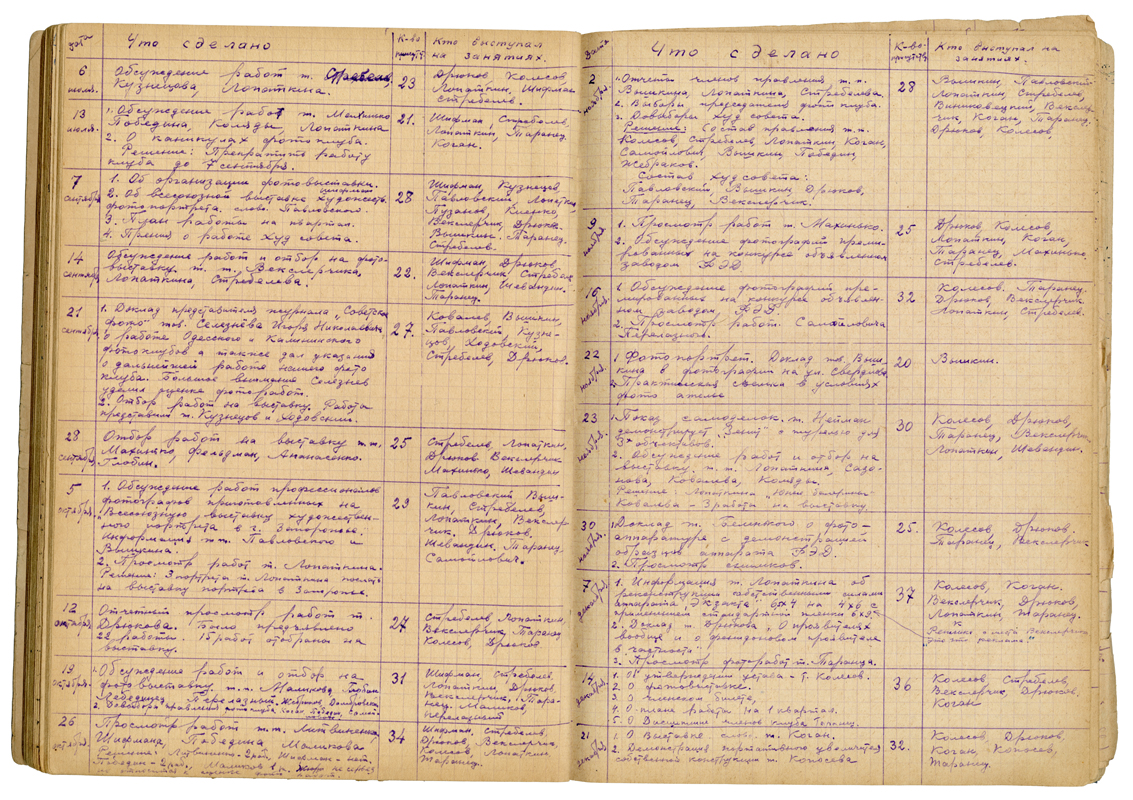 Дата
Что сделано
К-во присутс.
Кто выступал на занятиях.
6 июля.
Обсуждение работ т.
Кузнецова, Лопаткина.
23
Дрюков, Колесов,
Лопаткин, Шифман
Стребелев.
13 июля.
1. Обсуждение работ т. Махинько
Победина, Коляды, Лопаткина
2. О каникулах фотоклуба.
Решение: Прекратить работу
клуба до 7 сентября.
21.
Шифман, Стребелев,
Лопаткин, Таранец
Коган.
7 сентября
1. Об организации фотовыставки.
2. Об всесоюзной выставке художеств.
фотопортрета. слов. Павловского.
3. План работы на квартал.
4. Прения о работе худ совета.
28
Шифман, Кузнецов,
Павловский, Лопаткин
Пузанов, Клепко,
Векслерчик, Дрюков
Вышкин, Таранец.
Стребелев.
14 сентября
Обсуждение работ и отбор на фото-
выставку. т. т. Векслерчика,
Лопаткина, Стребелева.
22.
Шифман, Дрюков,
Векслерчик, Стребелев
Лопаткин, Шевандин.
Таранец.
21 сентября
1. Доклад представителя журнала „Советск.
фото" тов. Селезнева Игоря Николаевича
о работе Одесского и Калининского
фотоклубов а также дал указания
о дальнейшей работе нашего фото
клуба. Большое внимание Селезнев
уделил оценке фоторабот.
2. Отбор работ на выставку. Работа
представили т. Кузнецов и Ходовский.
27.
Ковалев, Вышкин,
Павловский Кузне-
цов, Ходовский,
Стребелев, Дрюков.
28 сентября.
Отбор работ на выставку т.т.
Махинько, Фельдман, Апанасенко.
Глобин.
25
Стребелев, Лопаткин,
Дрюков Векслерчик
Махинько, Шевандин
5 октября.
1. Обсуждение работ профессионалов
фотографов приготовленных на
Всесоюзную выставку художествен-
ного портрета в г. Запорожье.
Информация т.т. Павловского и
Вышкина.
2. Просмотр работ т. Лопаткина.
Решение: 3 портрета т. Лопаткина послать
на выставку портрета в Запорожье.
29
Павловский Выш-
кин, Стребелев,
Лопаткин, Векслер-
чик, Дрюков.
Шевандин, Таранец
Самойлович.
12 октября
Отчетный просмотр работ т.
Дрюкова. Было предъявлено
22 работы. 15 работ отобраны на
выставку.
27
Стребелев, Лопаткин,
Векслерчик, Таранец
Колесов, Дрюков
19 октября.
1. Обсуждение работ и отбор на
фото выставку. т.т. Маликова, Рыбак
Лебединец, Перелазный, Жебраков, Домбровский.
31
Шифман, Стребелев,
Лопаткин, Дрюков,
Векслерчик, Тара-
нец. Маликов,
Перелазный
26 октября.
Просмотр работ т.т. Литвиненко,
Шифмана, Победина, Маликова
34
Шифман, Стребелев.
Дрюков, Векслерчик,
Колесов, Лопаткин
Таранец.
Дата
Что сделано
К-во присутс.
Кто выступал на занятиях.
2 ноября
1. Отчеты членов правления т.т.
Вышкина, Лопаткина, Стребелева.
2. Выборы председателя фотоклуба.
3. Довыборы Худ совета.
Решение: Состав правления т.т.
Колесов, Стребелев, Лопаткин, Коган,
Самойлович, Вышкин, Победин,
Жебраков.
Состав Худсовета:
Павловский, Вышкин, Дрюков,
Таранец, Векслерчик.
28
Вышкин, Павловский
Лопаткин, Стребелев,
Винниковецкий, Векслер-
чик, Коган, Таранец,
Дрюков, Колесов
9 ноября
1. Просмотр работ т. Махинько.
2. Обсуждение фотографий преми-
рованных на конкурсе объявленном
заводом ФЭД.
25
Дрюков, Колесов,
Лопаткин, Коган,
Таранец, Махинько,
Стребелев.
16 ноября.
1. Обсуждение фотографий пре-
мированных на конкурсе объявлен-
ном заводом „ФЭД".
2. Просмотр работ: Самойловича
Перелазного.
32
Колесов. Таранец.
Дрюков, Векслерчик.
Лопаткин, Стребелев.
22 ноября.
1 Фотопортрет. Доклад тов. Выш-
кина в фотографии на ул. Свердлова
2. Практическая съемка в условиях
фото ателье
20
Вышкин.
23 ноября.
1. Показ самоделок. т. Нейман
демонстрирует „Зенит" с турелью для
3х объективов.
2. Обсуждение работ и отбор на
выставку. т.т. Лопаткина, Сазо-
нова, Ковалева, Коляды.
Решение: Лопаткина „Юная балерина"
Ковалева - 3 работы на выставку.
30
Колесов, Дрюков,
Таранец, Векслерчик
Лопаткин, Шевандин.
30 ноября.
1. Доклад т. Белинького о фото-
аппаратуре с демонстрацией
образцов аппарата ФЭД.
2. Просмотр снимков.
25.
Колесов, Дрюков.
Таранец, Векслерчик
7 декабря
1. Информация т. Лопаткина об
реконструкции собственными силами
аппарата „Экзакта" 6х4 на 4х6 с
применением стандартной пленки 6х9.
2. Доклад т. Дрюкова „О проявителях
вообще и о фенидоновом проявителе
в частности"
3. Просмотр фоторабот т. Таранца.
37
Колесов, Коган.
Векслерчик, Дрюков,
Лопаткин, Таранец.
14 декабря.
1. Об утверждении устава - т. Колесов.
2. О фотовыставке.
3. О членских билета.
4. О плане работы на 1 квартал.
5. О Дисциплине членов клуба
36
Колесов, Стребелев,
Векслерчик, Дрюков,
Коган
21 декабря.
1. О Выставке слов. т. Коган.
2. Демонстрация портативного увеличителя
собственной конструкции т. Копосева
32.
Колесов, Дрюков.
Коган, Копосев,
Таранец.